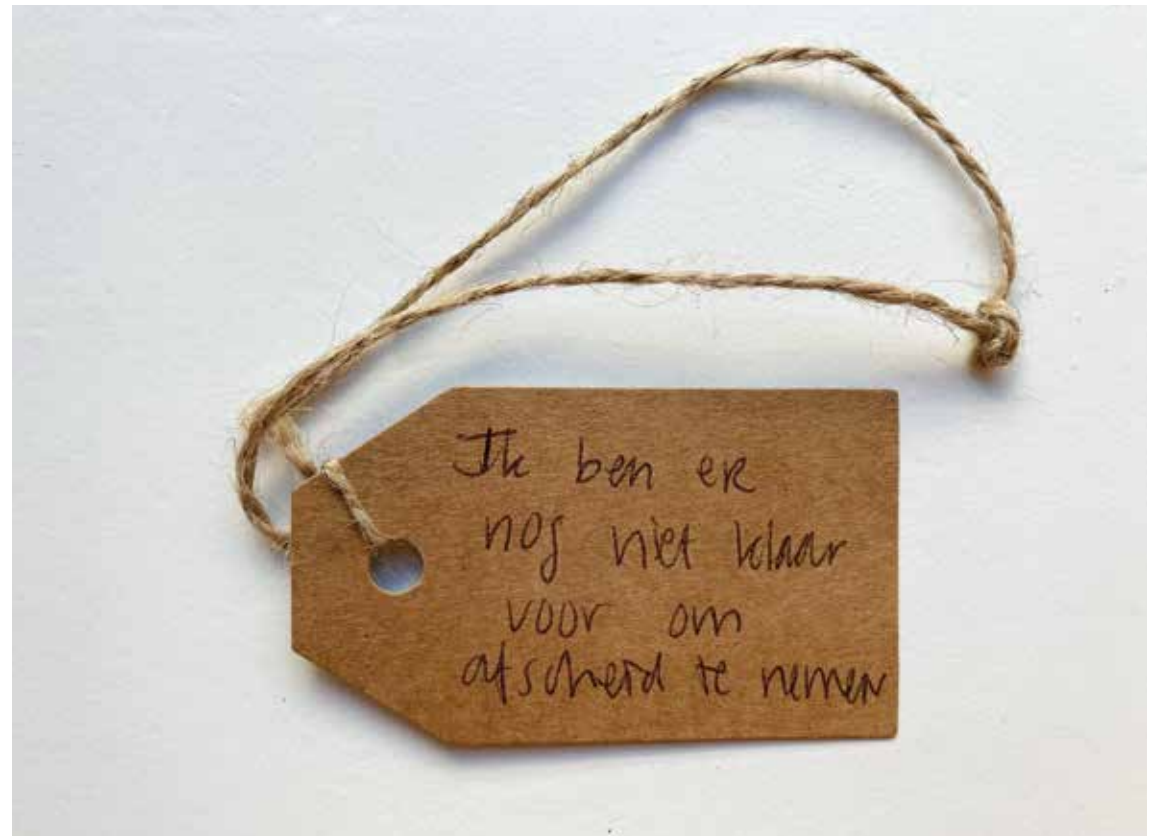 Ik ben er
nog niet klaar
voor om
afscheid te nemen